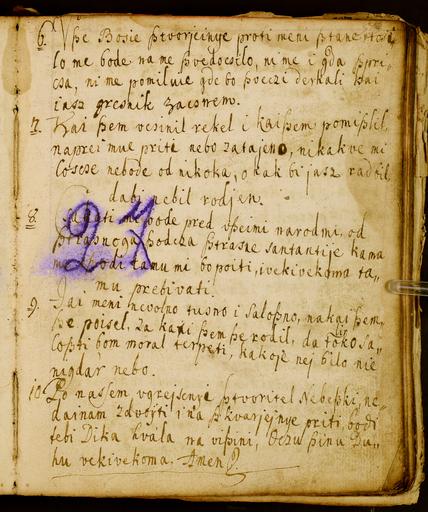 6. Vse Bosie stvorjeinye proti meni stane
lo me bode na me svedocsilo, ni me i gda spri=
csa, ni me pomiluie gde bo sveczi derkali kai
i iasz gresnik zacsnem.
7. Kai sem vcsinil rekel i kai sem pomislil,
naprei mue prite nebo zatajeno, nikakve mi
locsse nebode od nikoka, o kak bi jasz rad bil,
dabi nebil rodjen.
8. bode pred vseimi narodmi, od
strasnoga sodcza strasne santantije kama
hodi tamu mi bo poiti, ivekivekoma ta=
mu prebivati.
9. Jai meni nevolno tusno i salosno, na kai sem
se poisel, za kai sem se rodil, da toko sa=
losti bom moral terpeti, kakoje nej bilo nie
nigdar nebo.
10. Po nassem vgrejsenje stvoritel Nebeski, ne=
daj nam zavojti i na skvarjejnye priti, bodi
tebi Dika hvala na visini, Oczu sinu Du=
hu vekivekoma. Amen
27